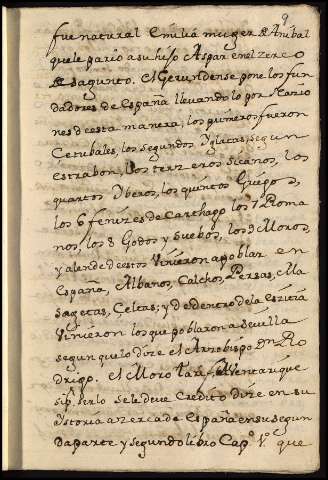 9
fue natural Emilia muger de Anibal
que le pario a su hijo Aspar en el zerco
de sagunto. el Gerundense pone los fun
dadores de España llevandolo por Nazio
nes de esta manera, los primeros fueron
Cetubales, los segundos Ygletas, segun
estrabon, los terzeros sicanos, los
quartos Yberos, los quintos Griegos,
los 6 fenizes de Carthago los 7 Roma
nos, los 8 Godos y suebos, los 9 Moros,
y alende de estos Vinieron a poblar en
España, Albanos, Calchos, Persas, Ma
sagetas, Çeltas; y de dentro de la Escitia
Vinieron los que poblaron a Sevilla
segun que lo dize el Arzobispo Dn Ro
drigo. el Moro Tarif Aventarique
si por serlo se le deve Credito dize en su
ystoria azerca de España en su segun
da parte y segundo libro Capo. 1o. que